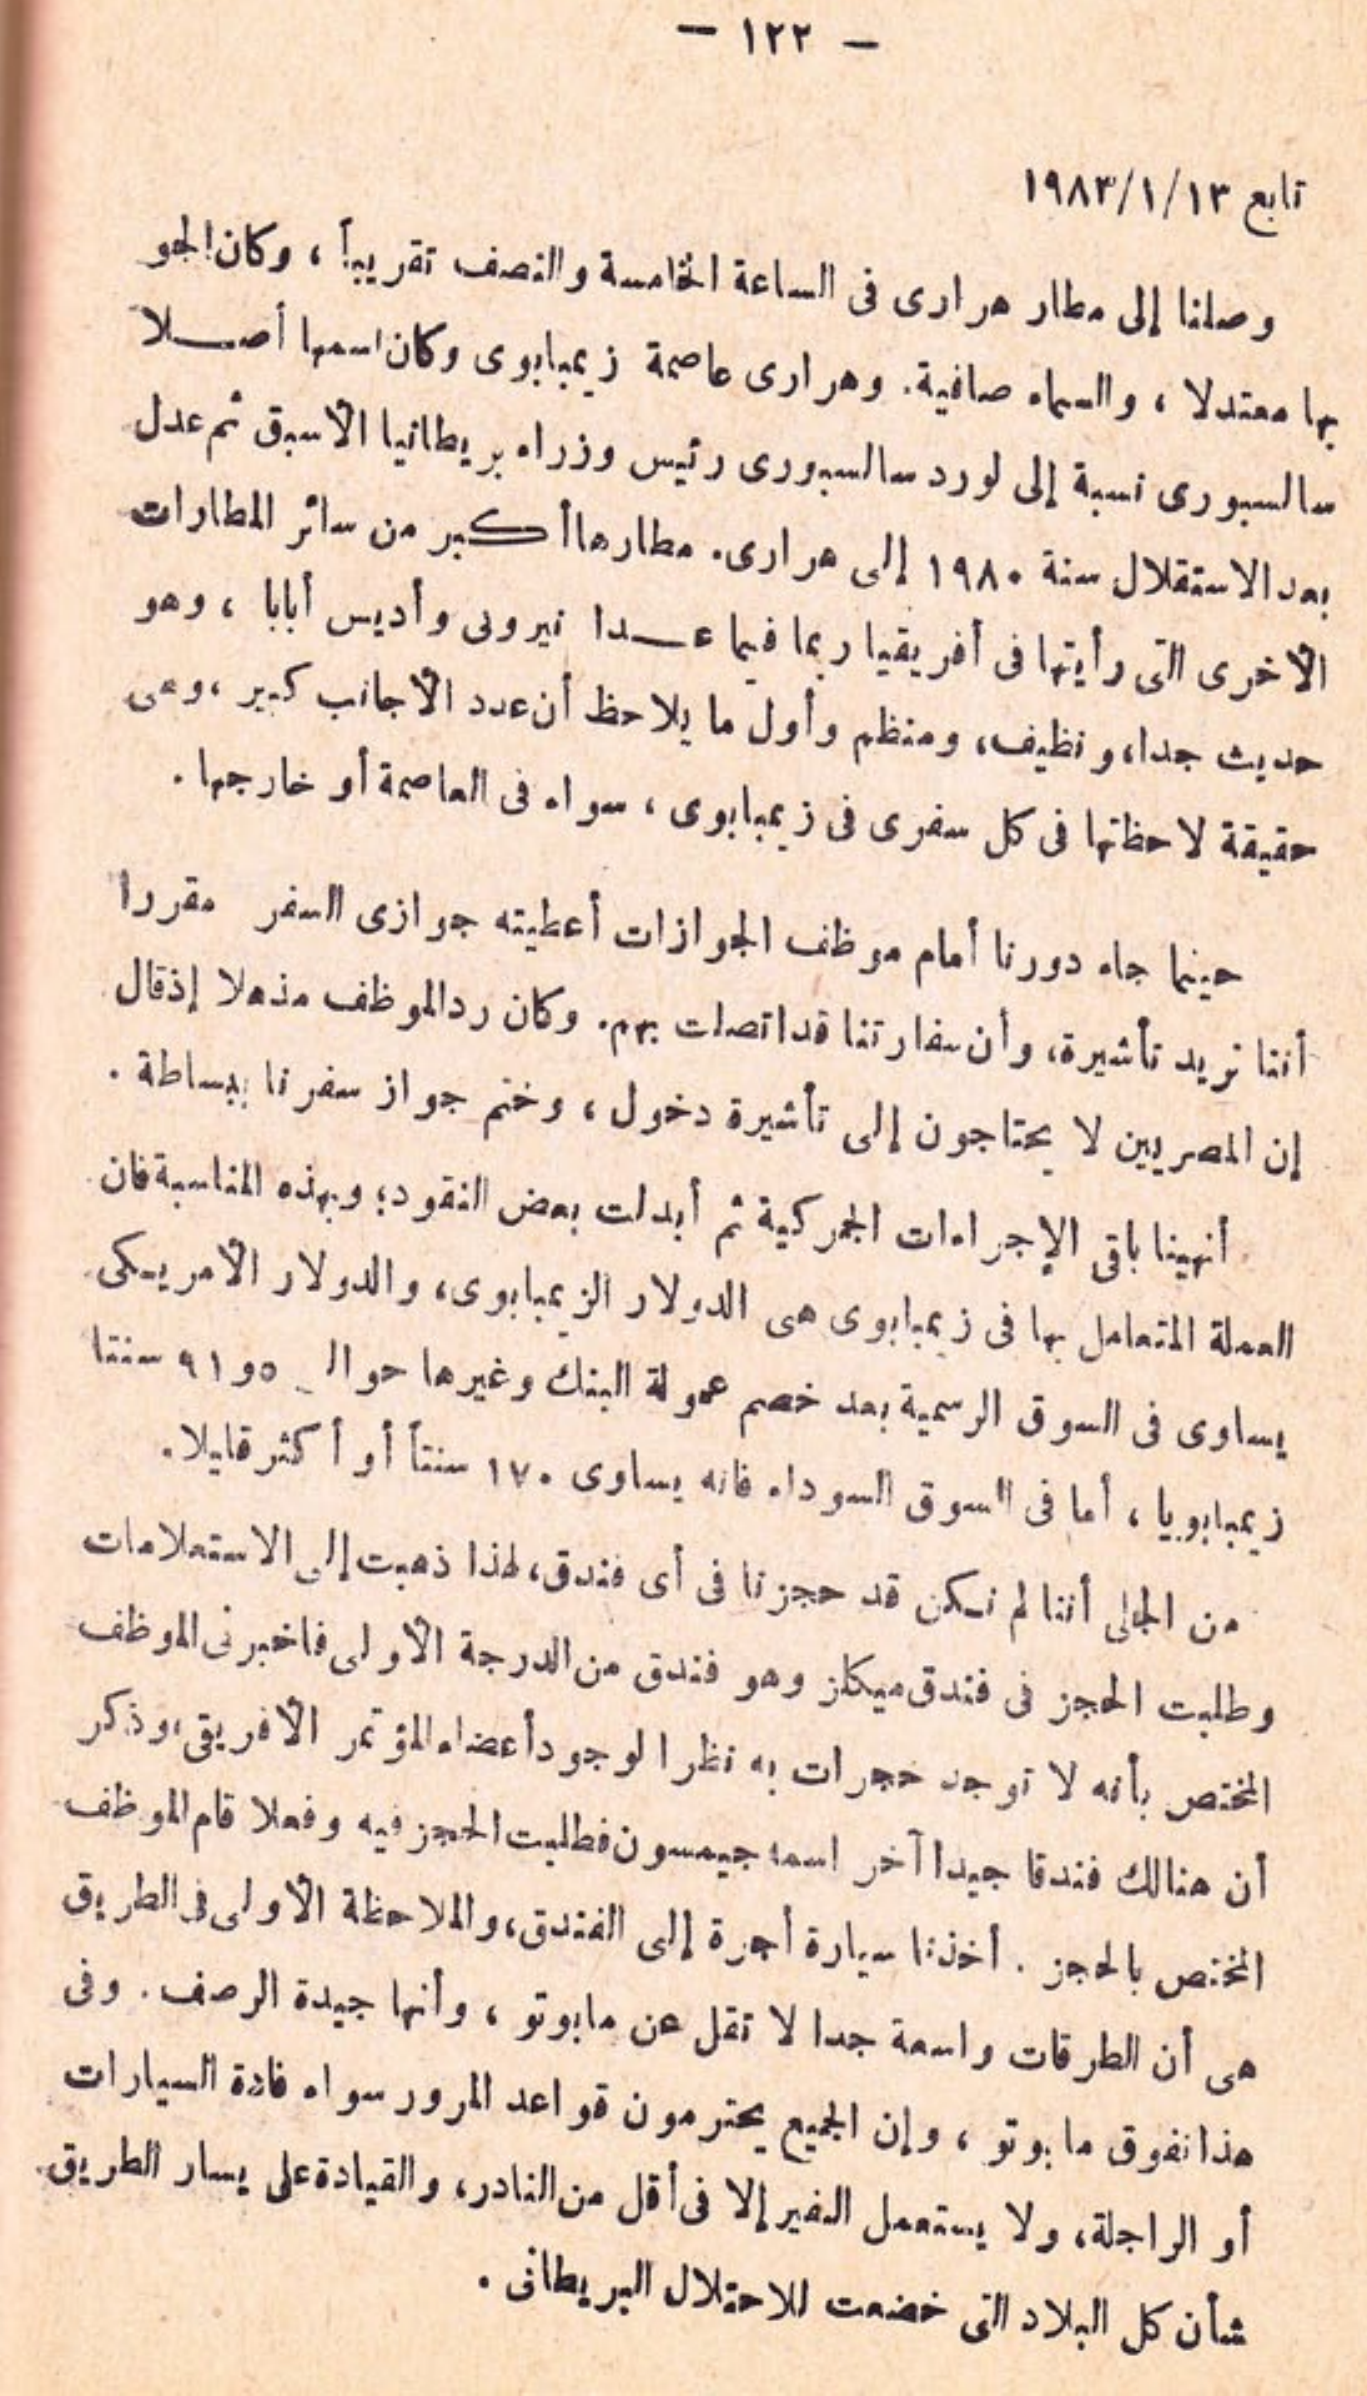 — ١٢٢ —
تابع ١٩٨٣/١/١٣
وصلنا إلى مطار هرارى فى الساعة الخامسة والنصف تقريباً ، وكان الجو
بها معتدلا ، والسماء صافية. وهرارى عاصمة زيمبابوى وكان اسمها أصلا
سالسبورى نسبة إلى لورد سالسبورى رئيس وزراء بريطانيا الأسبق ثم عدل
بعد الاستقلال سنة ١٩٨٠ إلى هرارى. مطارها أكبر من سائر المطارات
الأخرى التى رأيتها فى أفريقيا ربما فيما عدا نيروبى وأديس أبابا ، وهو
حديث جدا، ونظيف، ومنظم وأول ما يلاحظ أن عدد الأجانب كبير ، وهى
حقيقة لاحظتها فى كل سفرى فى زيمبابوى ، سواء فى العاصمة أو خارجها .
حينما جاء دورنا أمام موظف الجوازات أعطيته جوازى السفر مقررا
أننا نريد تأشيرة، وأن سفارتنا قد اتصلت بهم. وكان رد الموظف مذهلا إذ قال
إن المصريين لا يحتاجون إلى تأشيرة دخول ، وختم جواز سفرنا ببساطة .
أنهينا باقى الإجراءات الجمركية ثم أبدلت بعض النقود؛ وبهذه المناسبة فان
العملة المتعامل بها فى زيمبابوى هى الدولار الزيمبابوى، والدولار الأمريكى
يساوى فى السوق الرسمية بعد خصم عمولة البنك وغيرها حوالـ ٥و٩١ سنتا
زيمبابويا ، أما فى السوق السوداء فانه يساوى ١٧٠ سنتاً أو أكثر قليلا.
من الجلى أننا لم نكن قد حجزنا فى أى فندق، لهذا ذهبت إلى الاستعلامات
وطلبت الحجز فى فندق ميكلز وهو فندق من الدرجة الأولى فاخبرنى الموظف
المختص بأنه لا توجد حجرات به نظرا لوجود أعضاء المؤتمر الأفريقى، وذكر
أن هنالك فندقا جيدا آخر اسمه جيمسون فطلبت الحجز فيه وفعلا قام الموظف
المختص بالحجز . أخذنا سيارة أجرة إلى الفندق، والملاحظة الأولى فى الطريق
هى أن الطرقات واسعة جدا لا تقل عن مابوتو ، وأنها جيدة الرصف . وفى
هذا نفوق مابوتو ، وإن الجميع يحترمون قواعد المرور سواء قادة السيارات
أو الراجلة، ولا يستعمل النفير إلا فى أقل من النادر، والقيادة على يسار الطريق
شأن كل البلاد التى خضعت للاحتلال البريطانى .